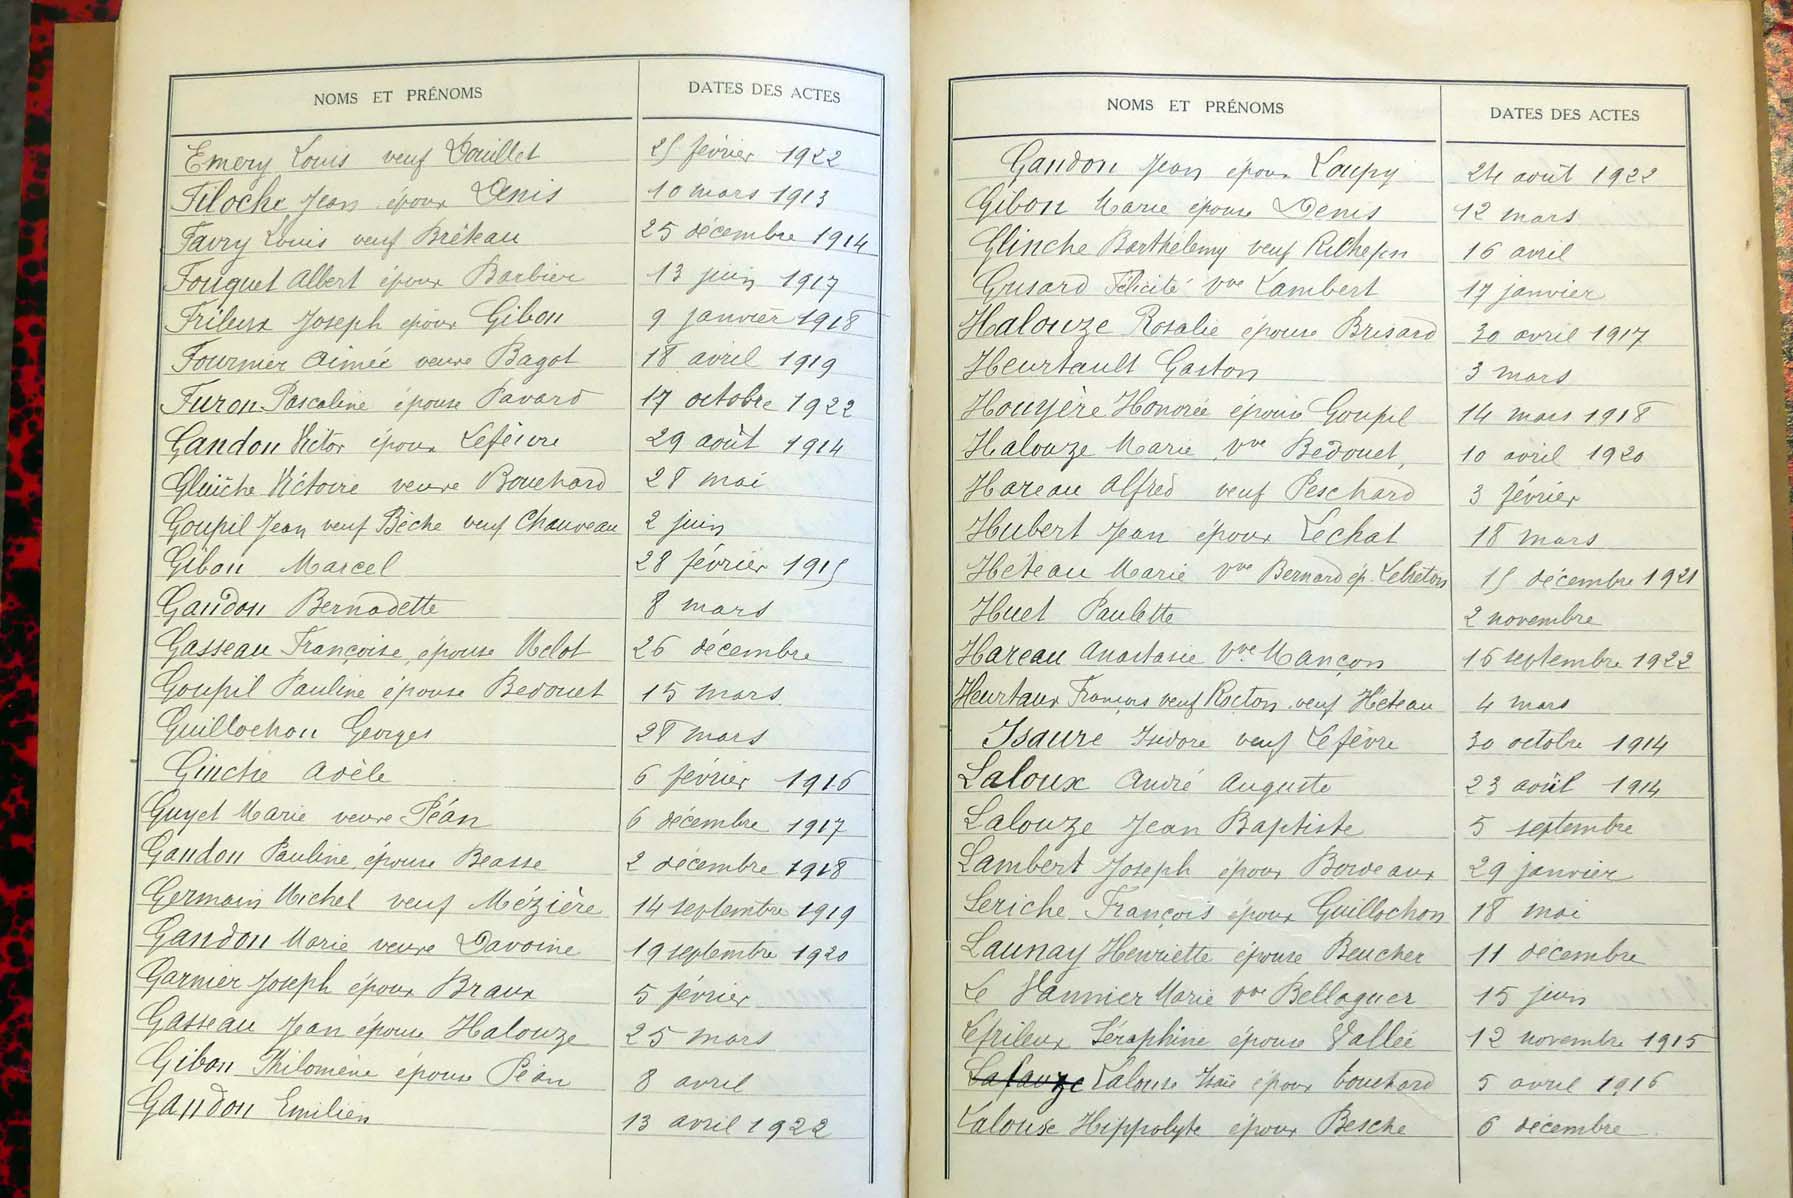 NOMS ET PRÉNOMS DATES DES ACTES
Emery Louis veuf Douillet 25 février 1922
Filoche Jean époux Denis 10 mars 1913
Favry Louis veuf Bréteau 25 décembre 1914
Fouquet Albert époux Barbier 13 juin 1917
Frileux Joseph époux Gibon 9 janvier 1918
Fournier Aimée veuve Bagot 18 avril 1919
Furon Pascaline épouse Pavard 17 octobre 1922
Gandon Victor époux Lefèvre 29 août 1914
Glinche Victoire veuve Bouchard 28 mai
Goupil Jean veuf Bèche veuf Chauveau 2 juin
Gibon Marcel 28 février 1915
Gandon Bernadette 8 mars
Gasseau Françoise, épouse Melot 26 décembre
Goupil Pauline épouse Bedouet 15 mars
Guillochon Georges 28 mars
Ginche Adèle 6 février 1916
Guyet Marie veuve Péan 6 décembre 1917
Gandon Pauline, épouse Beasse 2 décembre 1918
Germain Michel veuf Mézière 14 septembre 1919
Gandon Marie veuve Davoine 19 septembre 1920
Garnier Joseph époux Braux 5 février
Gasseau Jean épouse Halouze 25 mars
Gibon Philomène épouse Péan 8 avril
Gandon Emilien 13 avril 1922
NOMS ET PRÉNOMS DATES DES ACTES
Gandon Jean époux Loupy 24 août 1922
Gibon Marie épouse Denis 12 mars
Glinche Barthelemy veuf Richefin 16 avril
Gusard Félicité Vve Lambert 17 janvier
Halouze Rosalie épouse Brisard 30 avril 1917
Heurtault Gaston 3 mars
Houyère Honorée épouse Goupil 14 mars 1918
Halouze Marie Vve Bedouet, 10 avril 1920
Hareau Alfred veuf Peschard 3 février
Hubert Jean époux Lechat 18 mars
Héteau Marie Vve Bernard ép. Lebreton 15 décembre 1921
Huet Paulette 2 novembre
Hareau Anastasie Vve Mançon 16 septembre 1922
Heurtaux François veuf Rocton veuf Heteau 4 mars
Isaure Isidore veuf Lefèvre 30 octobre 1914
Laloux André Auguste 23 août 1914
Lalouze Jean Baptiste 5 septembre
Lambert Joseph époux Bordeaux 29 janvier
Leriche François époux Guillochon 18 mai
Launay Henriette épouse Beucher 11 décembre
Le Vannier Marie Vve Bellaguer 15 juin
Lefrileux Séraphine épouse Vallée 12 novembre 1915
Lalouse Isaïe époux Couchard 5 avril 1916
Lalouse Hippolyte époux Besche 6 décembre